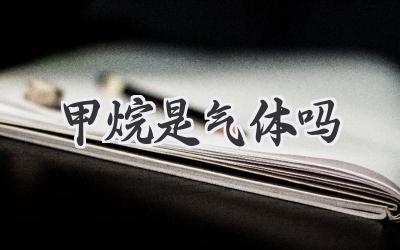 甲烷是气体吗